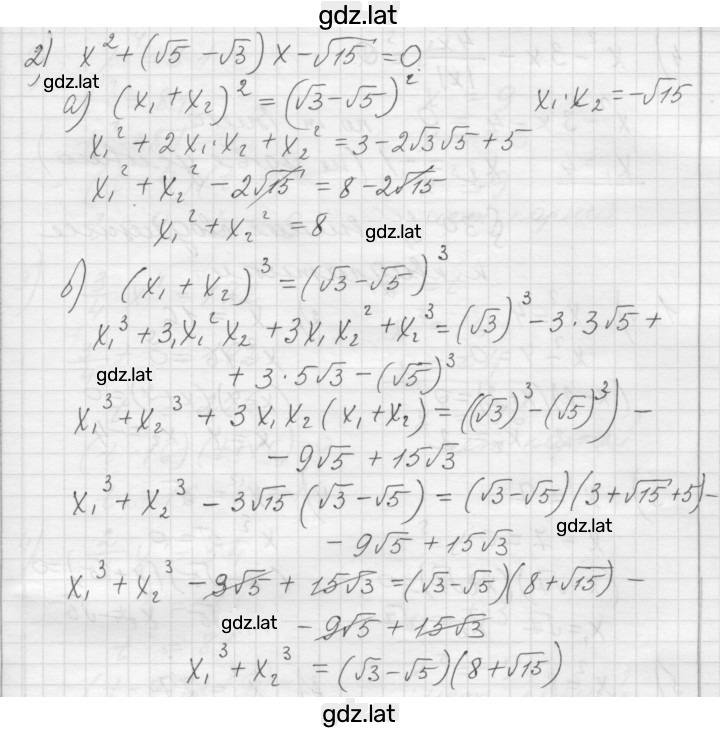 gdz.lat
2) x² + (√5 - √3) x - √15 = 0
gdz.lat
а) (x₁ + x₂)² = (√3 - √5)² x₁·x₂ = -√15
x₁² + 2x₁·x₂ + x₂² = 3 - 2√3√5 + 5
x₁² + x₂² - 2√15 = 8 - 2√15
x₁² + x₂² = 8
gdz.lat
б) (x₁ + x₂)³ = (√3 - √5)³
x₁³ + 3x₁²x₂ + 3x₁x₂² + x₂³ = (√3)³ - 3·3√5 +
gdz.lat
+ 3·5√3 - (√5)³
x₁³ + x₂³ + 3x₁x₂(x₁ + x₂) = ((√3)³ - (√5)³) -
- 9√5 + 15√3
x₁³ + x₂³ - 3√15(√3 - √5) = (√3 - √5)(3 + √15 + 5) -
gdz.lat
- 9√5 + 15√3
x₁³ + x₂³ - 9√5 + 15√3 = (√3 - √5)(8 + √15) -
gdz.lat
- 9√5 + 15√3
x₁³ + x₂³ = (√3 - √5)(8 + √15)
gdz.lat